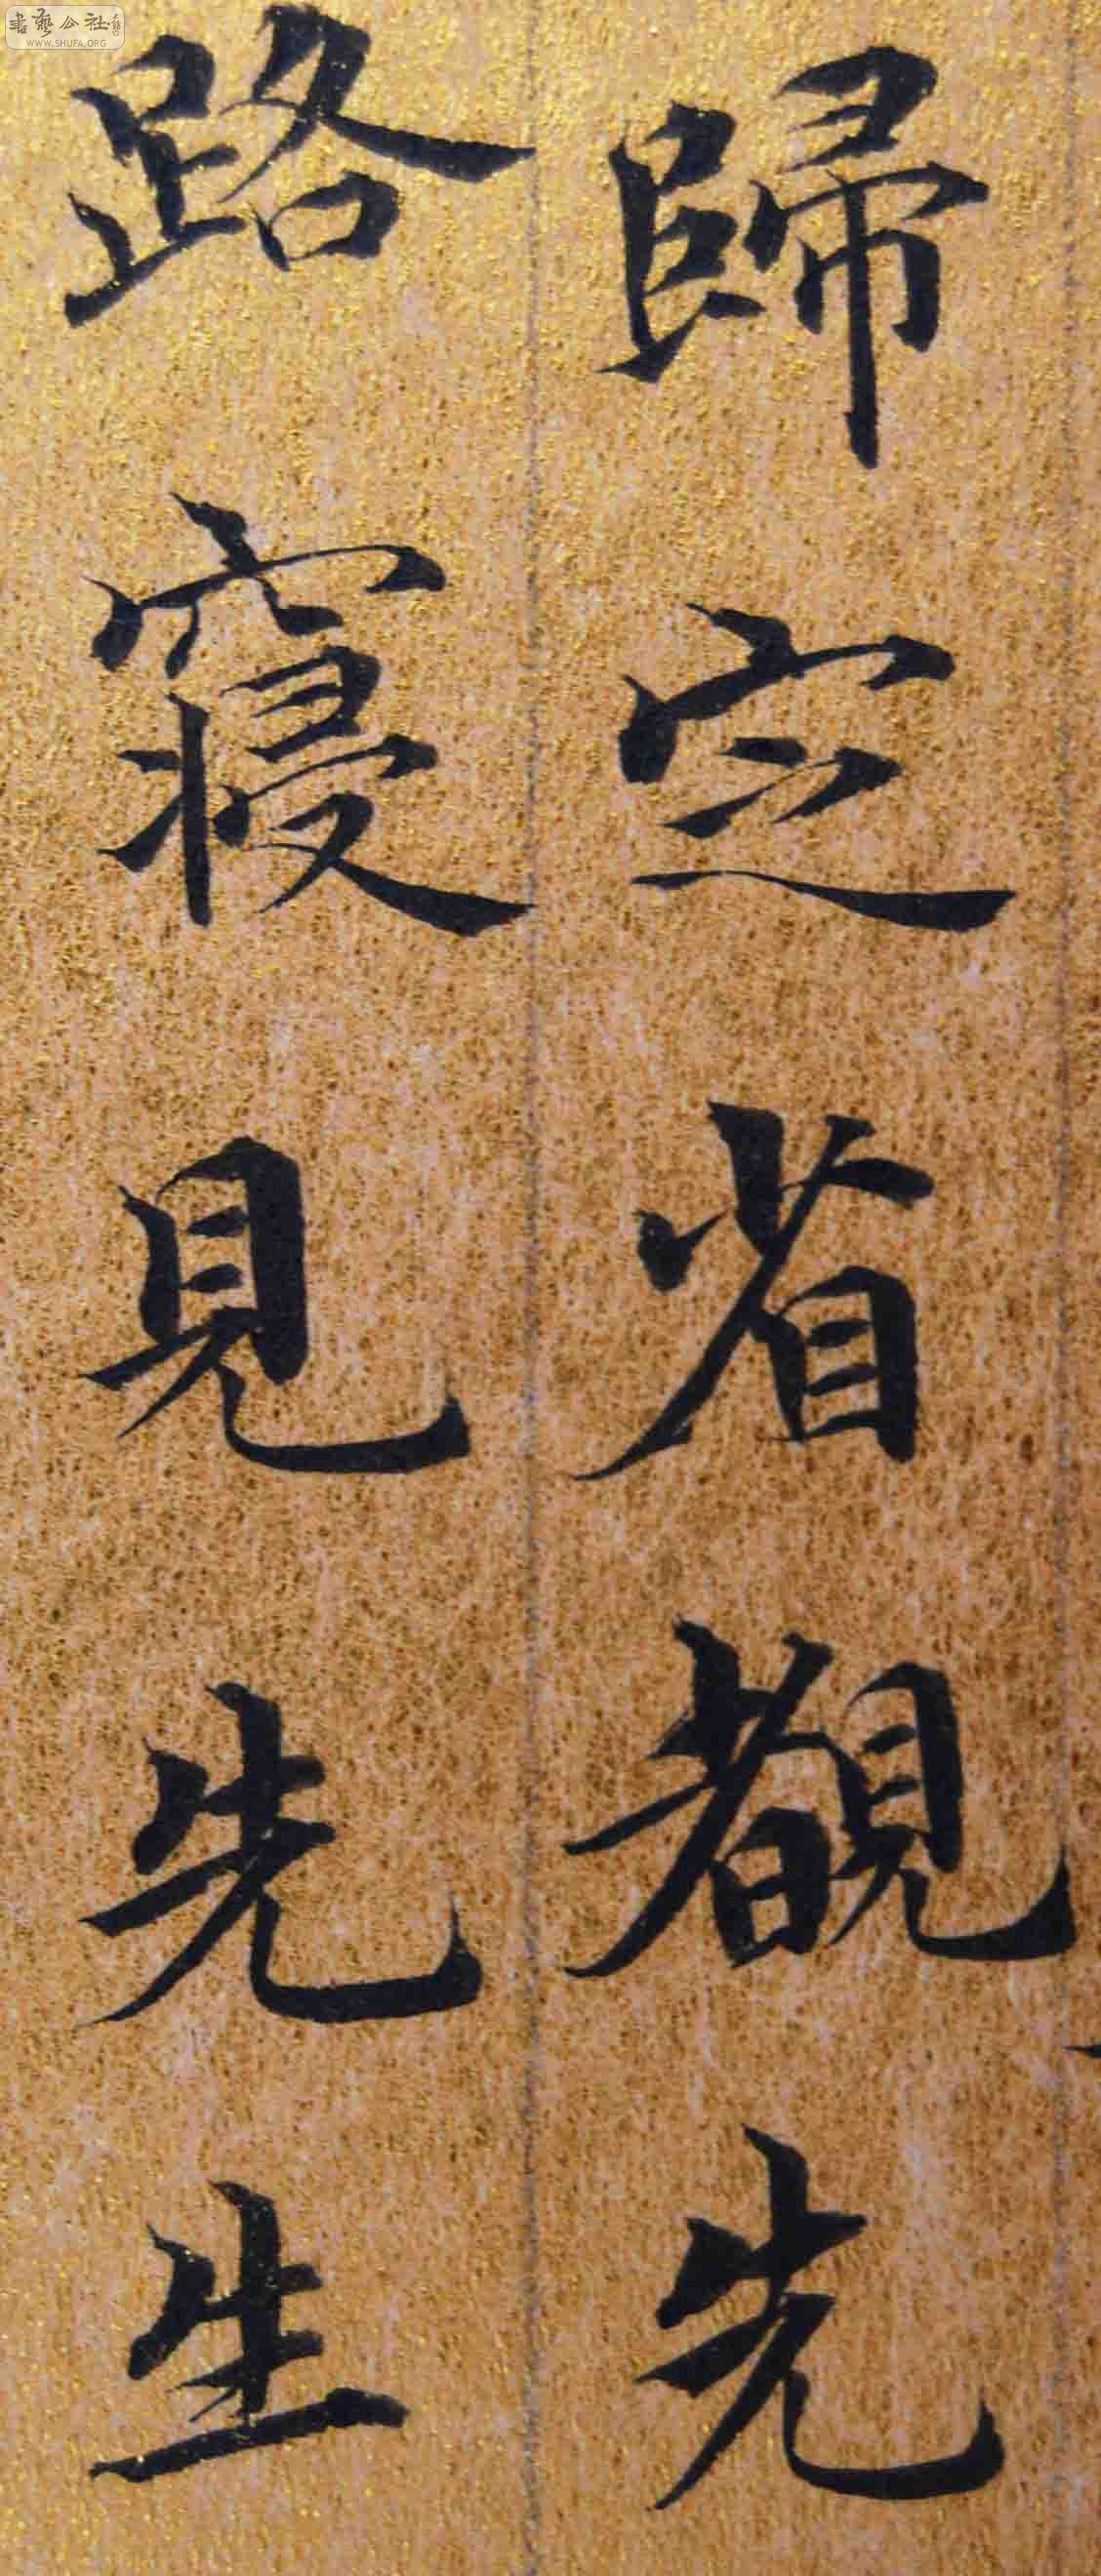 歸定省覩先
路寢見先生
書藝公社
WWW.SHUFA.ORG